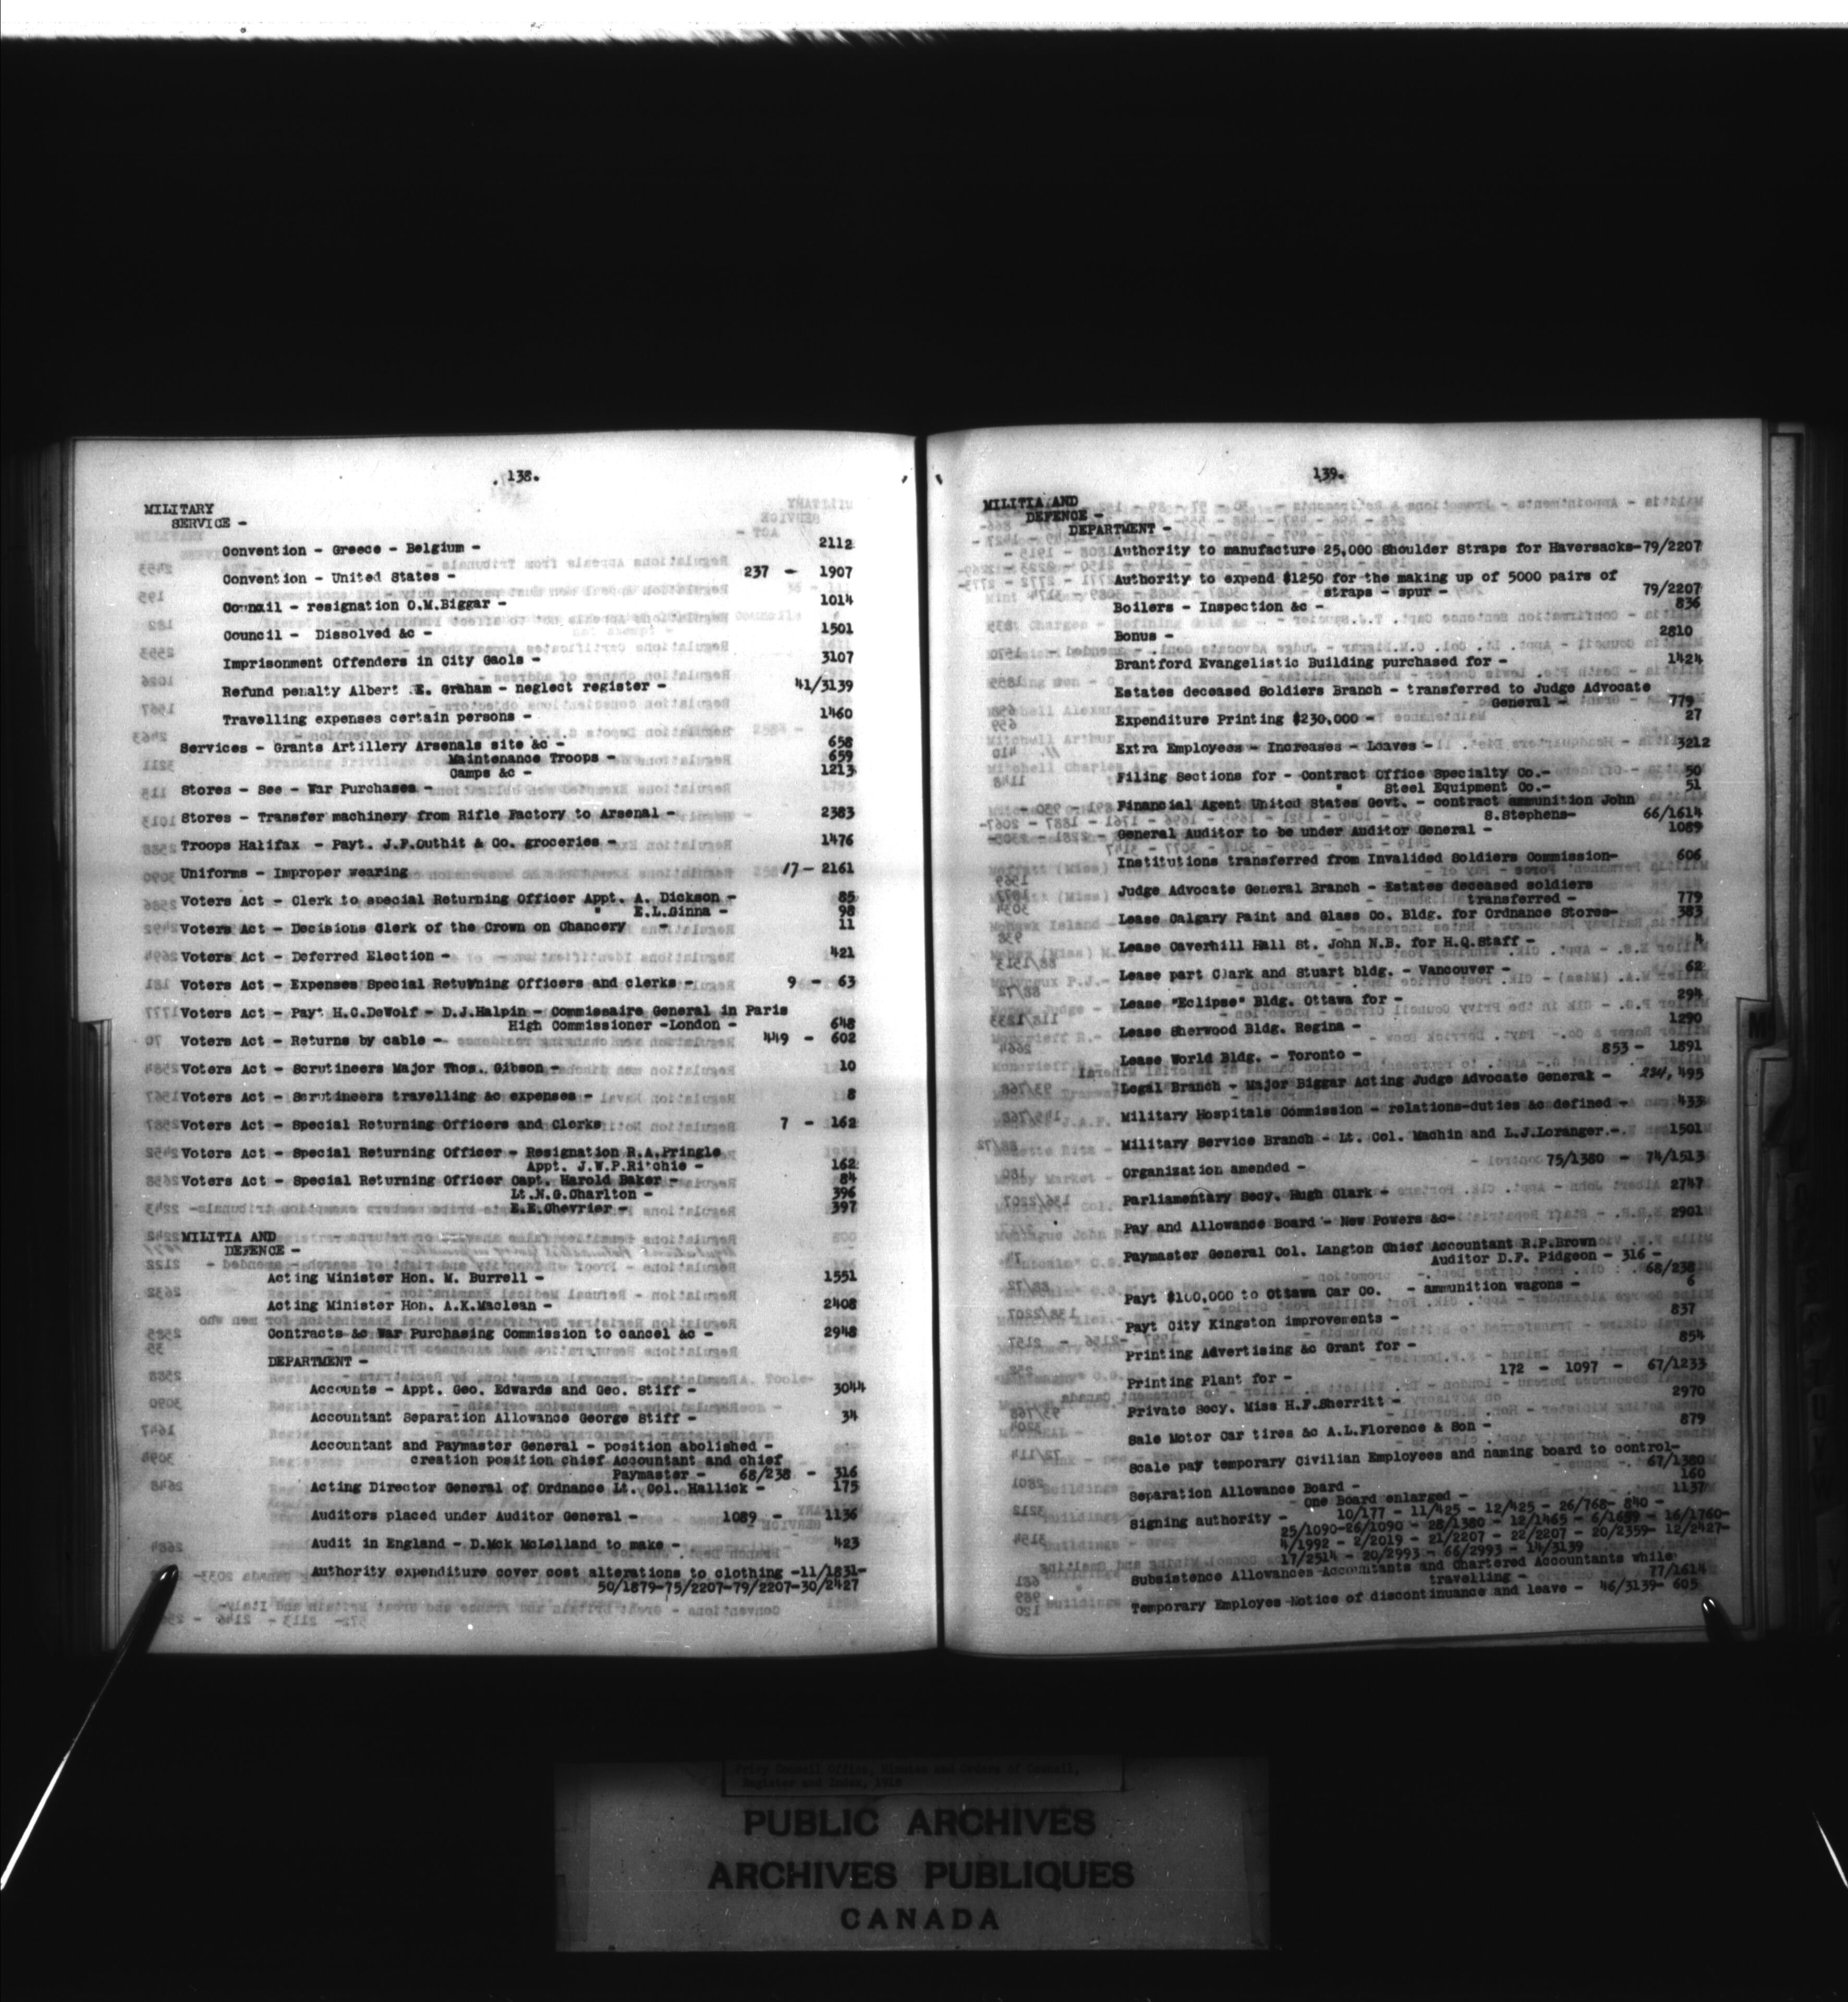 138.
MILITARY
SERVICE -
Convention - Greece - Belgium - 2112
Convention - United States - 237 - 1907
Council - resignation O.M.Biggar - 1014
Council - Dissolved &c - 1501
Imprisonment Offenders in City Gaols - 3107
Refund penalty Albert E. Graham - neglect register - 41/3139
Travelling expenses certain persons - 1460
Services - Grants Artillery Arsenals site &c - 658
Maintenance Troops - 659
Camps &c - 1213
Stores - See - War Purchases -
Stores - Transfer machinery from Rifle Factory to Arsenal - 2383
Troops Halifax - Payt. J.F.Outhit & Co. groceries - 1476
Uniforms - Improper wearing 17 - 2161
Voters Act - Clerk to special Returning Officer Appt. A. Dickson - 85
" E.L.Ginna - 98
Voters Act - Decisions Clerk of the Crown on Chancery - 11
Voters Act - Deferred Election - 421
Voters Act - Expenses Special Returning Officers and clerks - 9 - 63
Voters Act - Payt H.C.DeWolf - D.J.Halpin - Commissaire General in Paris
High Commissioner -London - 648
Voters Act - Returns by cable - 449 - 602
Voters Act - Scrutineers Major Thos. Gibson - 10
Voters Act - Scrutineers travelling &c expenses - 8
Voters Act - Special Returning Officers and Clerks 7 - 162
Voters Act - Special Returning Officer - Resignation R.A.Pringle
Appt. J.W.P.Ritchie - 162
Voters Act - Special Returning Officer Capt. Harold Baker - 84
Lt.N.G.Charlton - 396
E.E.Chevrier - 397
MILITIA AND
DEFENCE -
Acting Minister Hon. M. Burrell - 1551
Acting Minister Hon. A.K.Maclean - 2408
Contracts &c War Purchasing Commission to cancel &c - 2948
DEPARTMENT -
Accounts - Appt. Geo. Edwards and Geo. Stiff - 3044
Accountant Separation Allowance George Stiff - 34
Accountant and Paymaster General - position abolished -
creation position chief Accountant and chief
Paymaster - 68/238 - 316
Acting Director General of Ordnance Lt. Col. Hallick - 175
Auditors placed under Auditor General - 1089 - 1136
Audit in England - D.McK McLelland to make - 423
Authority expenditure cover cost alterations to clothing -11/1831-
50/1879-75/2207-79/2207-30/2427
139.
MILITIA AND
DEFENCE -
DEPARTMENT -
Authority to manufacture 25,000 Shoulder Straps for Haversacks-79/2207
Authority to expend $1250 for the making up of 5000 pairs of
straps - spur - 79/2207
Boilers - Inspection &c - 836
Bonus - 2810
Brantford Evangelistic Building purchased for - 1424
Estates deceased Soldiers Branch - transferred to Judge Advocate
General - 779
Expenditure Printing $230,000 - 27
Extra Employees - Increases - Leaves - 3212
Filing Sections for - Contract Office Specialty Co.- 50
" Steel Equipment Co.- 51
Financial Agent United States Govt. - contract ammunition John
S.Stephens- 66/1614
General Auditor to be under Auditor General - 1089
Institutions transferred from Invalided Soldiers Commission- 606
Judge Advocate General Branch - Estates deceased soldiers
transferred - 779
Lease Calgary Paint and Glass Co. Bldg. for Ordnance Stores- 383
Lease Caverhill Hall St. John N.B. for H.Q.Staff - 4
Lease part Clark and Stuart bldg. - Vancouver - 62
Lease "Eclipse" Bldg. Ottawa for - 294
Lease Sherwood Bldg. Regina - 1290
Lease World Bldg. - Toronto - 853 - 1891
Legal Branch - Major Biggar Acting Judge Advocate General - 495
Military Hospitals Commission - relations-duties &c defined - 433
Military Service Branch - Lt. Col. Machin and L.J.Loranger.- 1501
Organization amended - 75/1380 - 74/1513
Parliamentary Secy. Hugh Clark - 2747
Pay and Allowance Board - New Powers &c- 2901
Paymaster General Col. Langton Chief Accountant R.P.Brown
Auditor D.F. Pidgeon - 316 -
68/238
Payt $100,000 to Ottawa Car Co. - ammunition wagons - 6
Payt City Kingston improvements - 837
Printing Advertising &c Grant for - 854
Printing Plant for - 172 - 1097 - 67/1233
Private Secy. Miss H.F.Sherritt - 2970
Sale Motor Car tires &c A.L.Florence & Son - 879
Scale pay temporary Civilian Employees and naming board to control-
67/1380
Separation Allowance Board - 160
- one Board enlarged - 1137
Signing authority - 10/177 - 11/425 - 12/425 - 26/768- 840 -
25/1090-26/1090 - 28/1380 - 12/1465 - 6/1659 - 16/1760-
4/1992 - 2/2019 - 21/2207 - 22/2207 - 20/2359- 12/2427-
17/2514 - 20/2993 - 66/2993 - 14/3139
Subsistence Allowances Accountants and Chartered Accountants while
travelling - 77/1614
Temporary Employes Notice of discontinuance and leave - 46/3139- 605
Privy Council Office, Minutes and Orders of Council,
Register and Index, 1918
PUBLIC ARCHIVES
ARCHIVES PUBLIQUES
CANADA